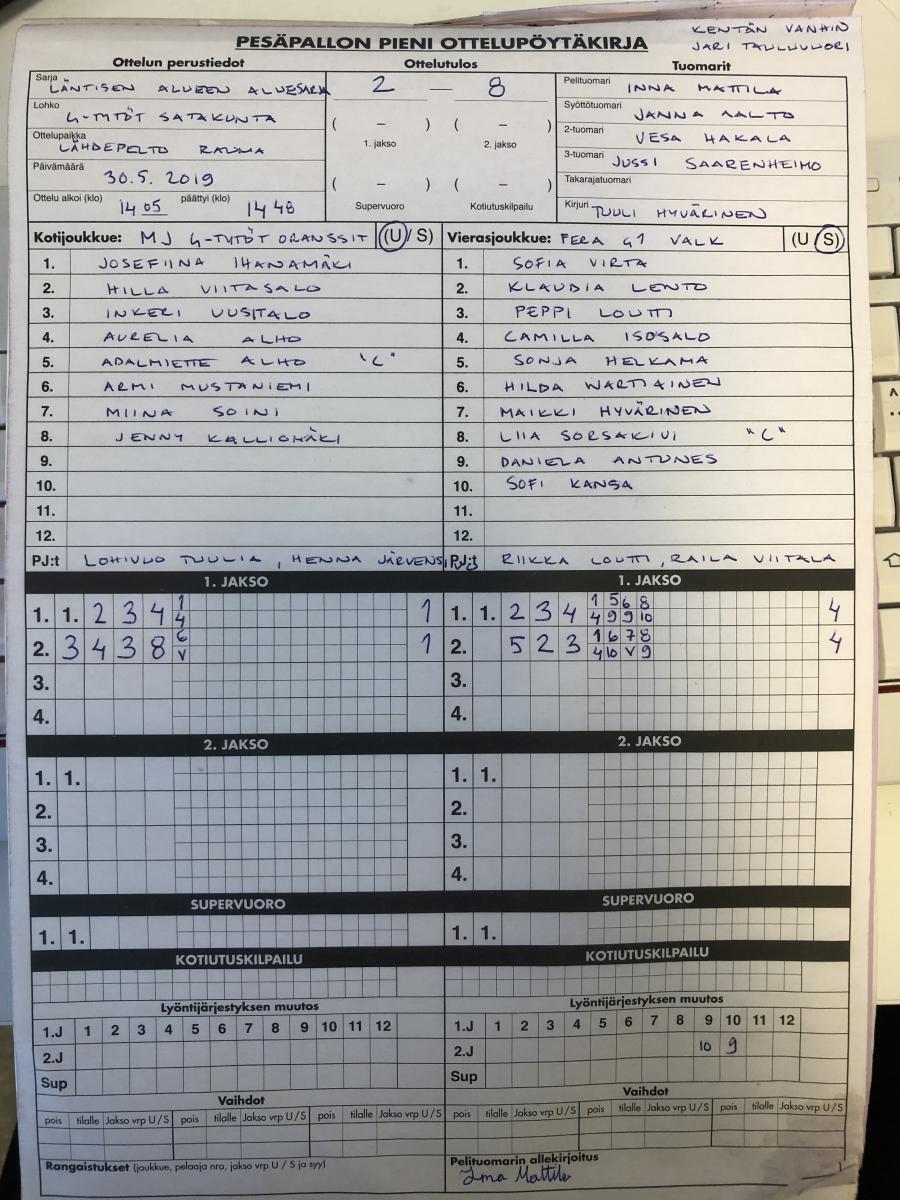 KENTÄN VANHIN
PESÄPALLON PIENI OTTELUPÖYTÄKIRJA
Ottelun perustiedot Ottelutulos Tuomarit
Sarja LÄNTISEN ALUEEN ALUESARJA
Lohko G-TYTÖT SATAKUNTA
Ottelupaikka LÄHDEPELTO RAUMA
Päivämäärä 30.5.2019
Ottelu alkoi (klo) 14 05 päättyi (klo) 14 48
2 — 8
( – ) ( – )
1. jakso 2. jakso
( – ) ( – )
Supervuoro Kotiutuskilpailu
Pelituomari INNA MATTILA
Syöttötuomari JANNA AALTO
2-tuomari VESA HAKALA
3-tuomari JUSSI SAARENHEIMO
Takarajatuomari
Kirjuri TUULI HYVÄRINEN
Kotijoukkue: MJ G-TYTÖT ORANSSIT (U / S)
1. JOSEFIINA IHANAMÄKI
2. HILLA VIITASALO
3. INKERI UUSITALO
4. AURELIA ALHO
5. ADALMIETTE ALHO "C"
6. ARMI MUSTANIEMI
7. MIINA SOINI
8. JENNY KALLIOMÄKI
9.
10.
11.
12.
PJ:t LOHIVUO TUULIA, HENNA
Vierasjoukkue: FERA G1 VALK (U / S)
1. SOFIA VIRTA
2. KLAUDIA LENTO
3. PEPPI LOUTTI
4. CAMILLA ISOSALO
5. SONJA HELKAMA
6. HILDA WARTIAINEN
7. MAIKKI HYVÄRINEN
8. LIIA SORSAKIVI "C"
9. DANIELA ANTUNES
10. SOFI KANSA
11.
12.
PJ:t RIIKKA LOUTTI, RAILA VIITALA
1. JAKSO
1. 1. 2 3 4 1 1
4
2. 3 4 3 8 6 1
V
3.
4.
2. JAKSO
1. 1.
2.
3.
4.
SUPERVUORO
1. 1.
KOTIUTUSKILPAILU
Lyöntijärjestyksen muutos
1.J 1 2 3 4 5 6 7 8 9 10 11 12
2.J
Sup
Vaihdot
pois tilalle Jakso vrp U / S pois tilalle Jakso vrp U / S pois tilalle Jakso vrp U / S
Rangaistukset (joukkue, pelaaja nro, jakso vrp U / S ja syy)
1. JAKSO
1. 1. 2 3 4 1 5 6 8 4
4 9 9 10
2. 5 2 3 1 6 7 8 4
4 10 V 9
3.
4.
2. JAKSO
1. 1.
2.
3.
4.
SUPERVUORO
1. 1.
KOTIUTUSKILPAILU
Lyöntijärjestyksen muutos
1.J 1 2 3 4 5 6 7 8 9 10 11 12
2.J 10 9
Sup
Vaihdot
pois tilalle Jakso vrp U / S pois tilalle Jakso vrp U / S pois tilalle Jakso vrp U / S
Pelituomarin allekirjoitus